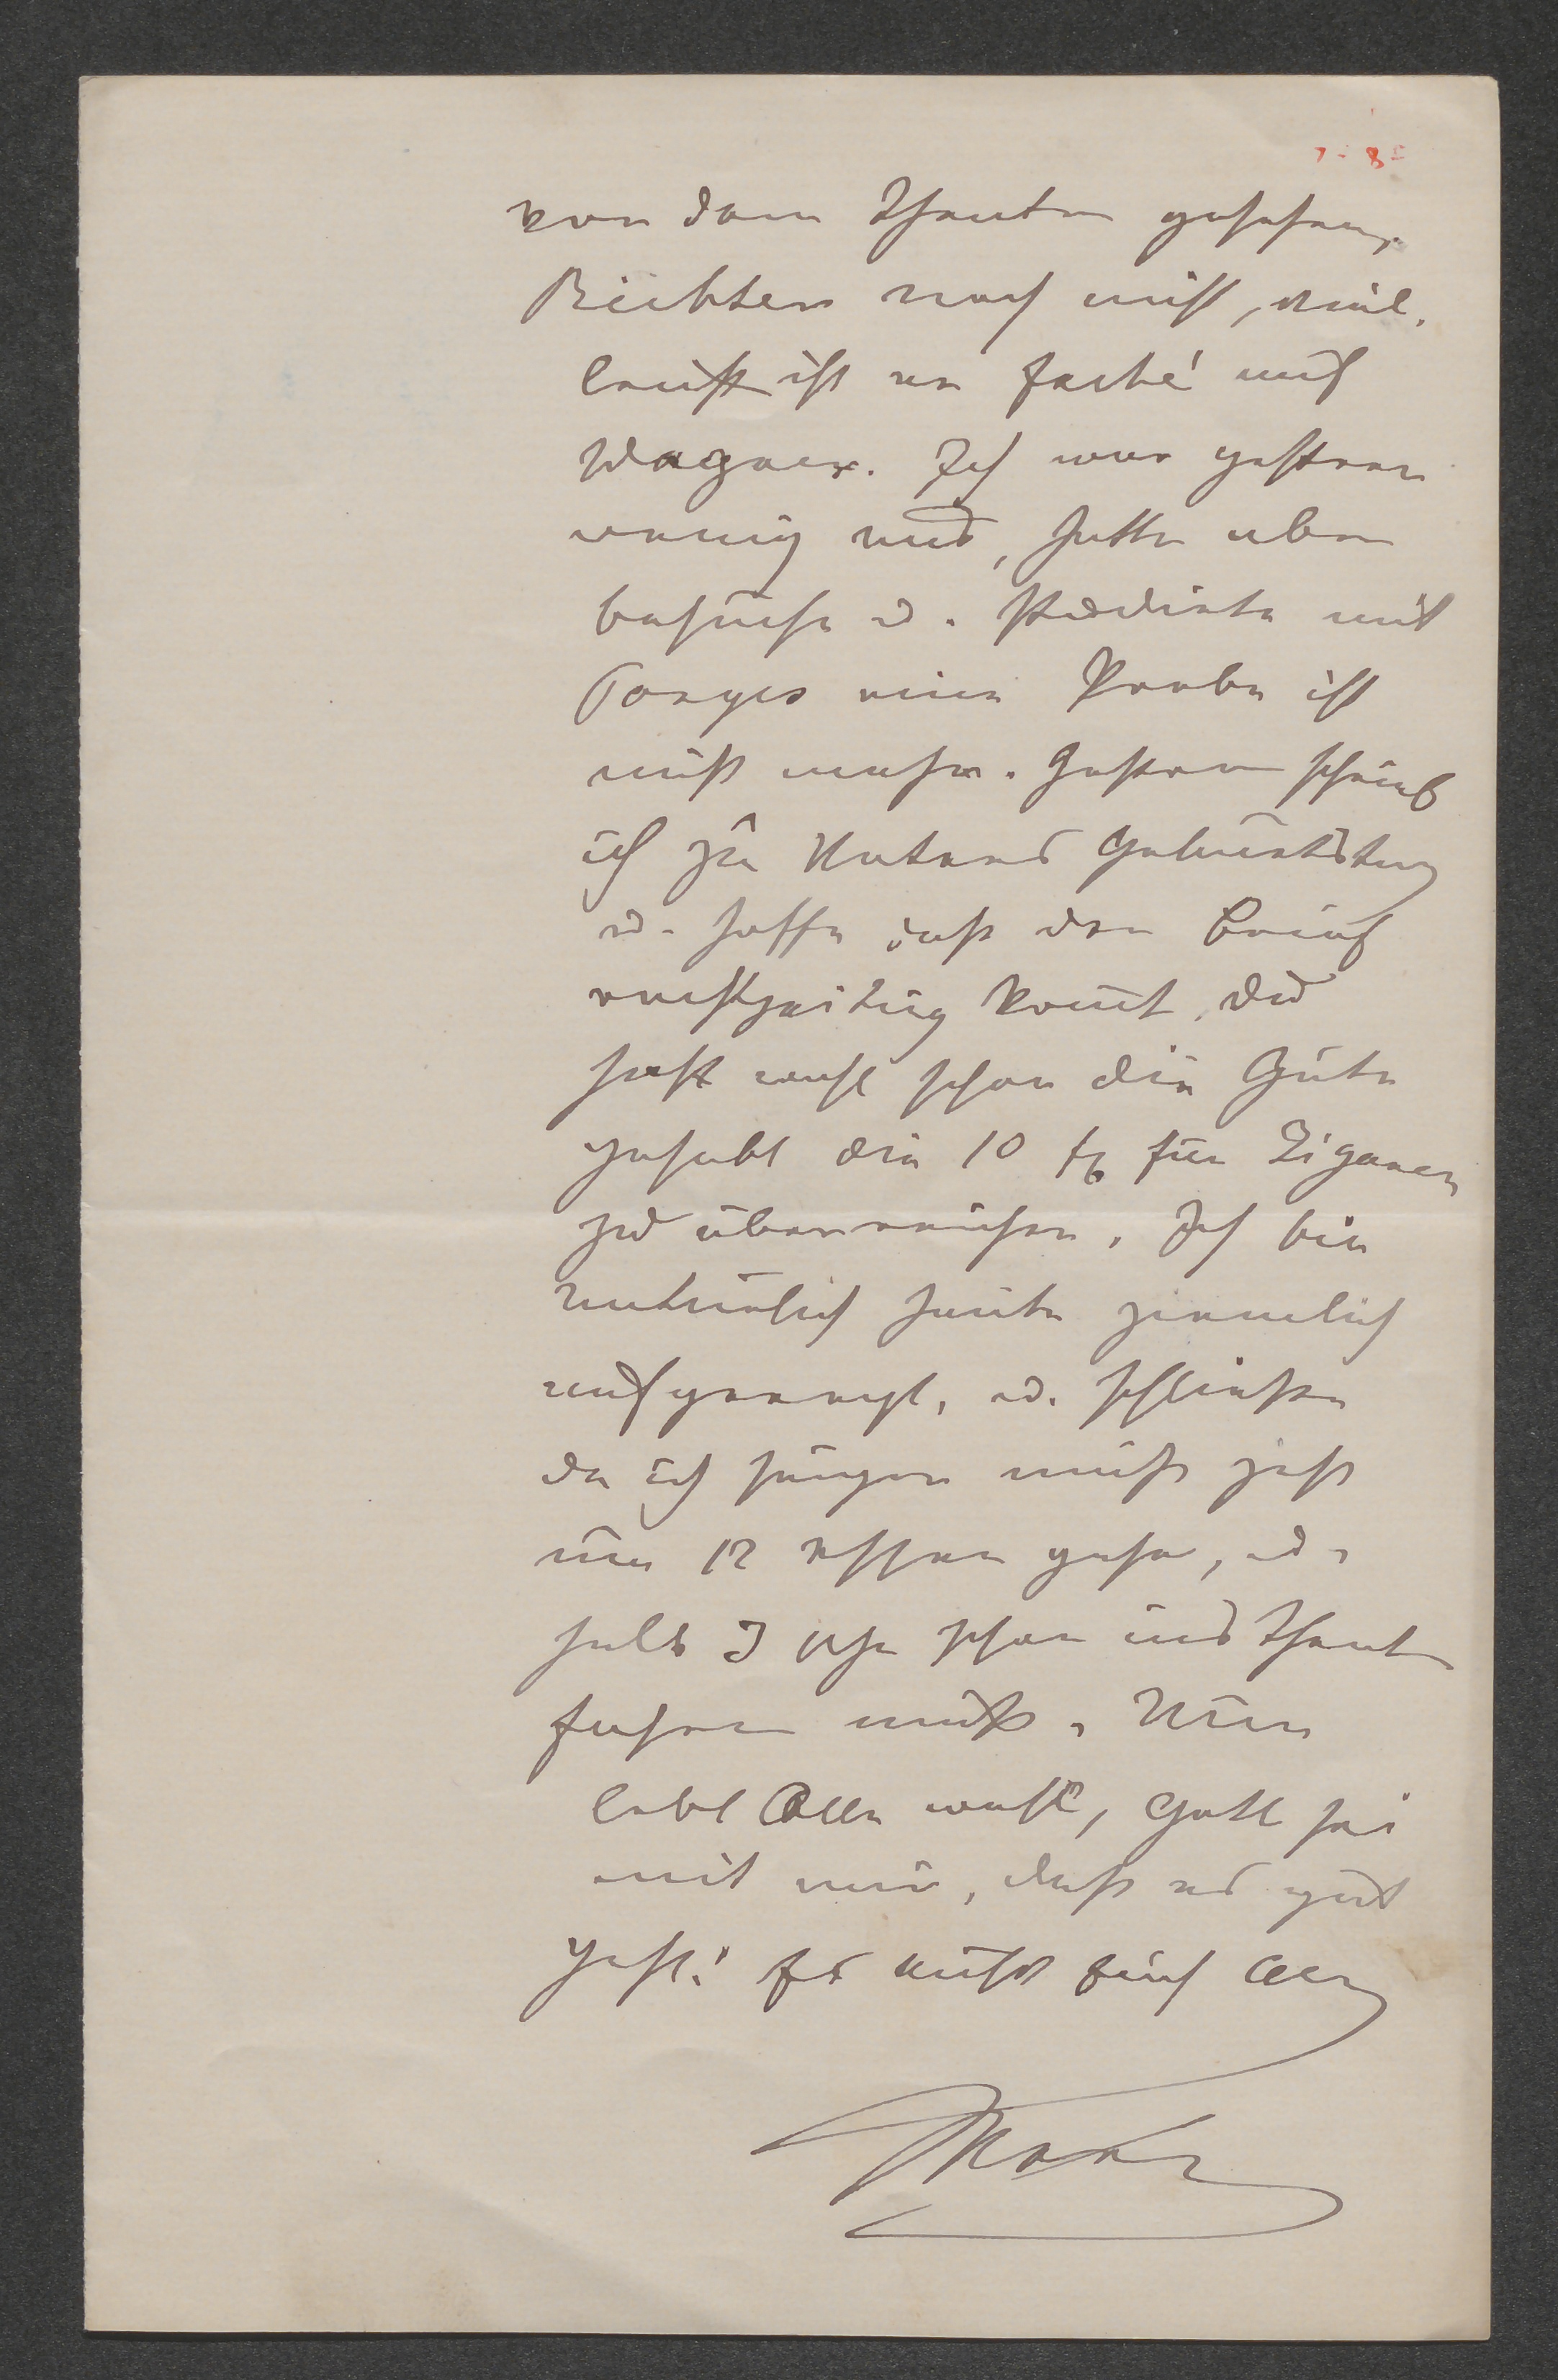 7-8
vor dem Theater gesehen,
Richter noch nicht, viel-
leicht ist er faché auf
Wagner. Ich war gestern
wenig aus, hatte aber
besuche u. studierte mit
Porges eine Probe ist
nicht mehr. Gestern schrieb
ich zu Vaters Geburtstag
u. hoffe daß der Brief
rechtzeitig kommt, Du
hast wohl schon die Güte
gehabt die 10 fl für Zigarren
zu überreichen. Ich bin
natürlich heute ziemlich
aufgeregt, u. schließe
da ich singen muß jetzt
um 12 essen gehe, u.
halb 3 Uhr schon ins Theater
fahren muß. Nun
lebt Alle wohl, Gott sei
mit mir, daß es gut
geht! Es küßt Euch Alle